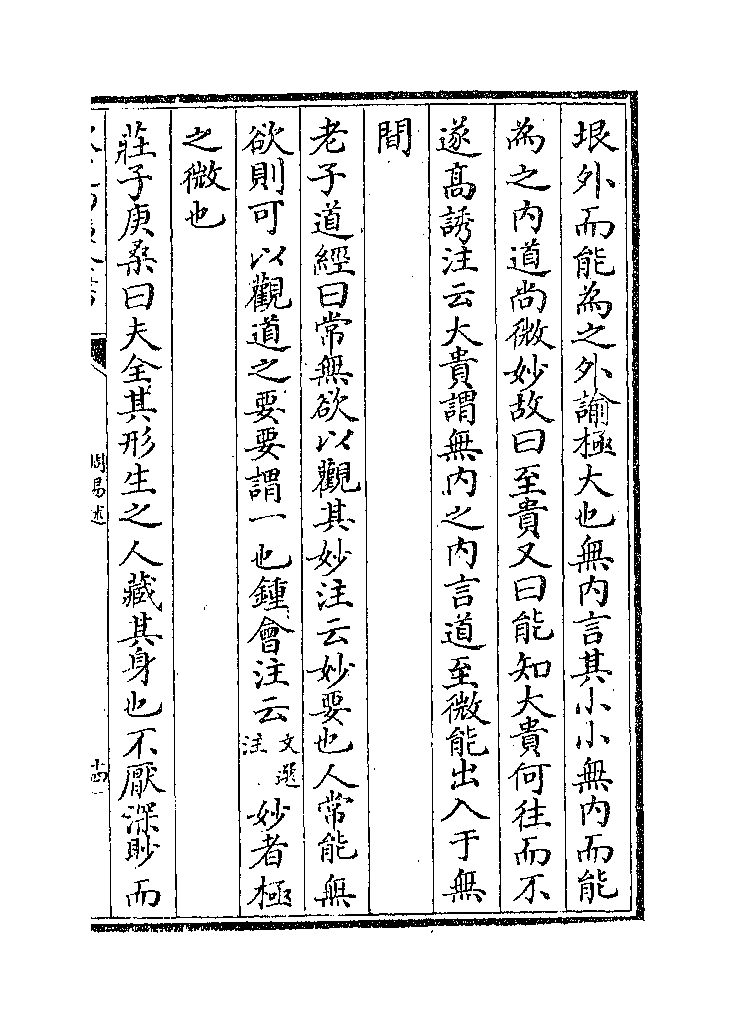 垠外而能為之外諭極大也無内言其小小無内而能
為之内道尚微妙故曰至貴又曰能知大貴何往而不
遂高誘注云大貴謂無内之内言道至微能出入于無
間
老子道經曰常無欲以觀其妙注云妙要也人常能無
欲則可以觀道之要要謂一也鍾會注云文選注妙者極
之微也
莊子庚桑曰夫全其形生之人藏其身也不厭深眇而
周易述
十四